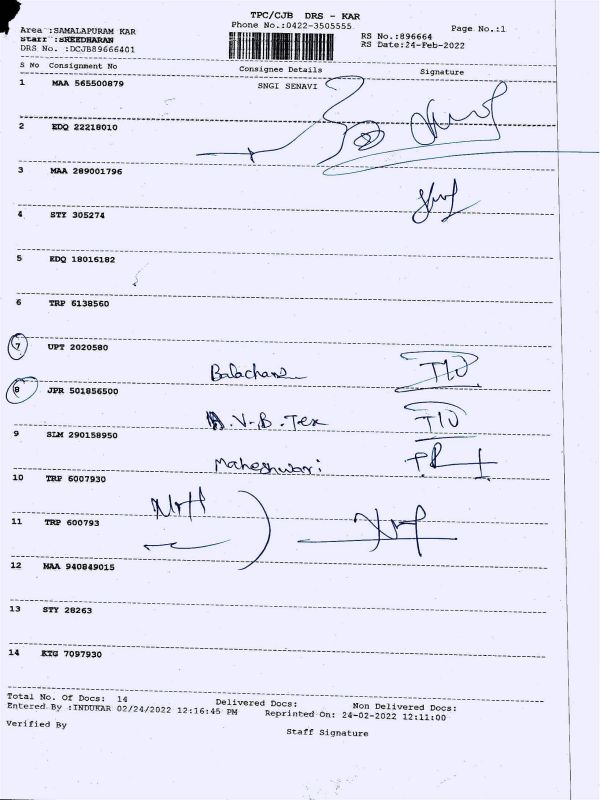 TPC/CJB DRS - KAR
Area :SAMALAPURAM KAR Phone No.:0422-3505555 Page No.:1
Staff :SREEDHARAN RS No.:896664
DRS No. :DCJB89666401 RS Date:24-Feb-2022
S No Consignment No Consignee Details Signature
1 MAA 565500879 SNGI SENAVI
2 EDQ 22218010
3 MAA 289001796
4 STY 305274
5 EDQ 18016182
6 TRP 6138560
7 UPT 2020580
Balachand
8 JPR 501856500
V.B.Tex
9 SLM 290158950
Maheshwari
10 TRP 6007930
11 TRP 600793
12 MAA 940849015
13 STY 28263
14 KTG 7097930
Total No. Of Docs: 14 Delivered Docs: Non Delivered Docs:
Entered By :INDUKAR 02/24/2022 12:16:45 PM Reprinted On: 24-02-2022 12:11:00
Verified By Staff Signature